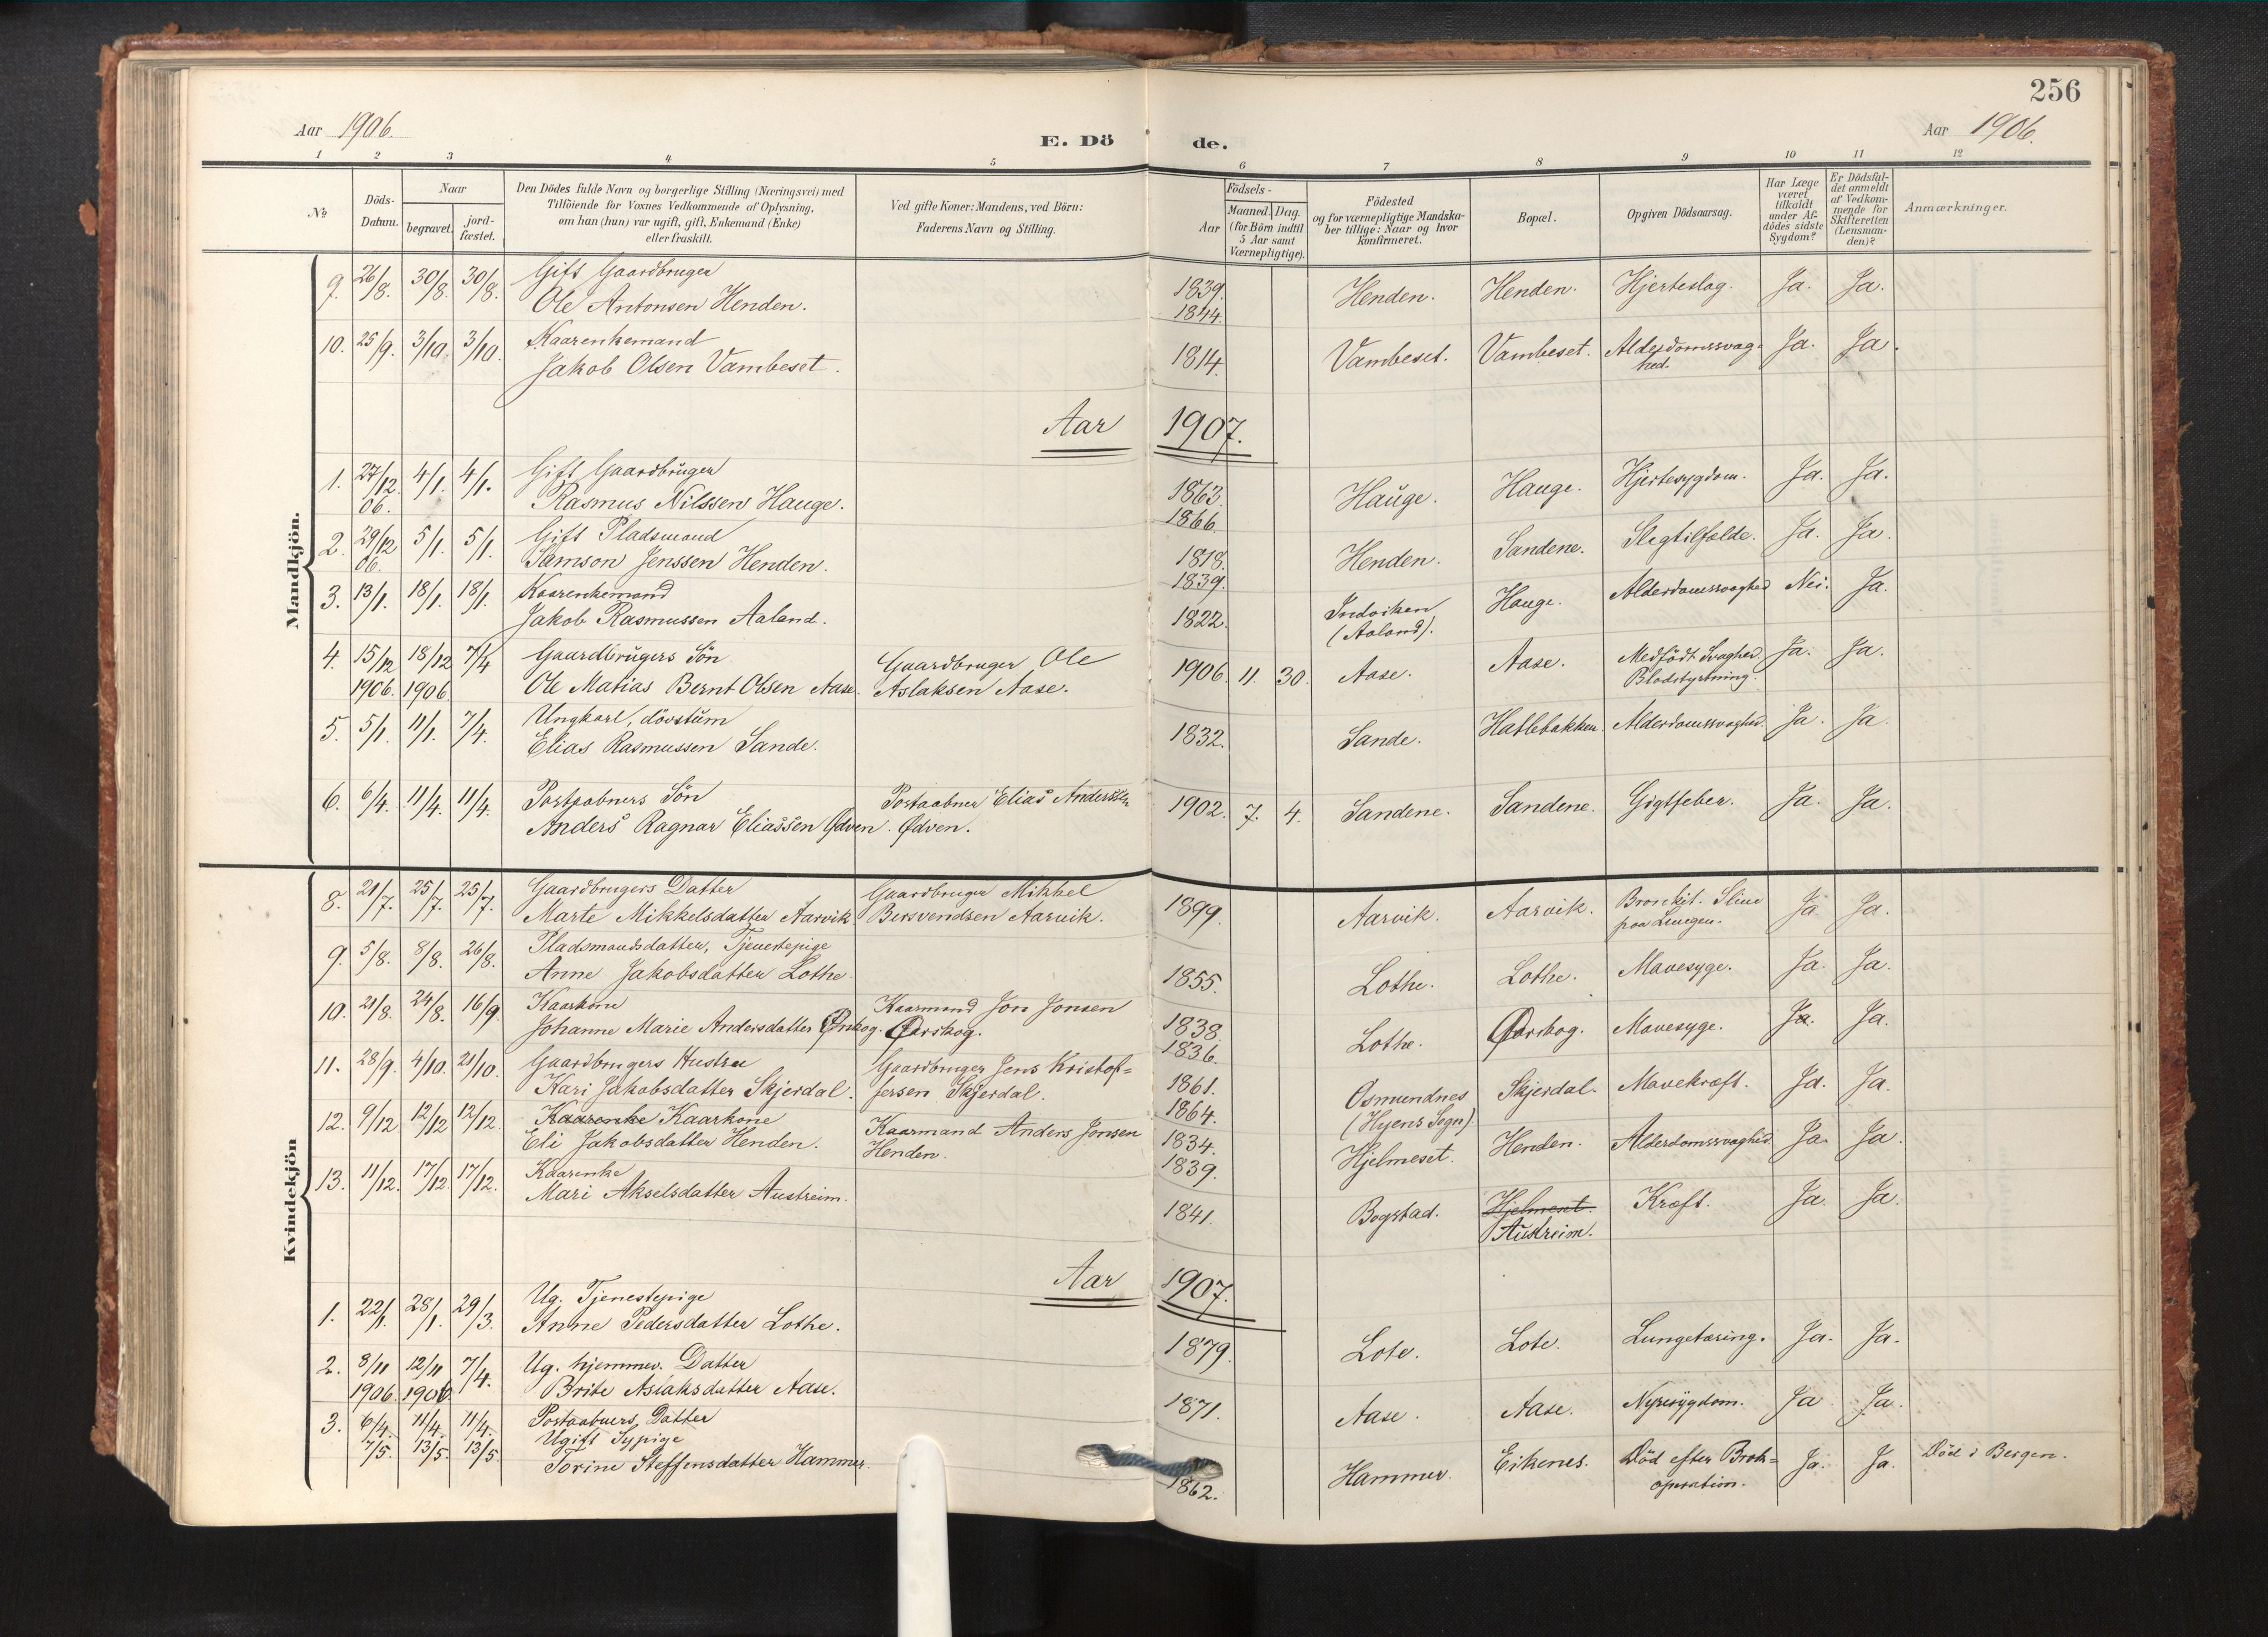 256
Aar 1906.
E. Dö
de.
Aar 1906.
1 2 3 4 5 6 7 8 9 10 11 12
№
Döds-
Datum.
Naar
begravet.
jord-
fæstet.
Den Dödes fulde Navn og borgerlige Stilling (Næringsvei) med
Tilföiende for Voxnes Vedkommende af Oplysning,
om han (hun) var ugift, gift, Enkemand (Enke)
eller fraskilt.
Ved gifte Koner: Mandens, ved Börn:
Faderens Navn og Stilling.
Födsels-
Aar
Maaned. Dag.
(for Börn indtil
5 Aar samt
Værnepligtige).
Födested
og for værnepligtige Mandska-
ber tillige: Naar og hvor
konfirmeret.
Bopæl.
Opgiven Dödsaarsag.
Har Læge
været
tilkaldt
under Af-
dödes sidste
Sygdom?
Er Dödsfal-
det anmeldt
af Vedkom-
mende for
Skifteretten
(Lensman-
den)?
Anmærkninger.
Mandkjön.
9. 26/8. 30/8. 30/8. Gift Gaardbruger
Ole Antonsen Henden. 1839. Henden. Henden. Hjerteslag. Ja. Ja.
1844.
10. 25/9. 3/10. 3/10. Kaarenkemand
Jakob Olsen Vambeset. 1814. Vambeset. Vambeset. Alderdomssvag-
hed. Ja. Ja.
Aar 1907.
1. 27/12 06. 4/1. 4/1. Gift Gaardbruger
Rasmus Nilssen Hauge. 1863. Hauge. Hauge. Hjertesygdom. Ja. Ja.
1866.
2. 29/12 06. 5/1. 5/1. Gift Pladsmand
Samson Jenssen Henden. 1818. Henden. Sandene. Slagtilfælde. Ja. Ja.
1839.
3. 13/1. 18/1. 18/1. Kaarenkemand
Jakob Rasmussen Aaland. 1822. Indviken
(Aaland). Hauge. Alderdomssvaghed Nei. Ja.
4. 15/12 1906. 18/12 1906 7/4 Gaardbrugers Sön
Ole Matias Bernt Olsen Aase. Gaardbruger Ole
Aslaksen Aase. 1906. 11. 30. Aase. Aase. Medfödt Svaghed.
Blodstyrtning. Ja. Ja.
5. 5/1. 11/1. 7/4. Ungkarl, dövstum
Elias Rasmussen Sande. 1832. Sande. Hatlebakken. Alderdomssvaghed. Ja. Ja.
6. 6/4. 11/4. 11/4. Postaabners Sön
Anders Ragnar Eliassen Ødven. Postaabner Elias Anderssen
Ødven. 1902. 7. 4. Sandene. Sandene. Gigtfeber. Ja. Ja.
Kvindekjön
8. 21/7. 25/7. 25/7. Gaardbrugers Datter
Marte Mikkelsdatter Aarvik Gaardbruger Mikkel
Bersvendsen Aarvik. 1899. Aarvik. Aarvik. Bronkit. Sliim
paa Lungen. Ja. Ja.
9. 5/8. 8/8. 26/8. Pladsmandsdatter, Tjenestepige
Anne Jakobsdatter Lothe. 1855. Lothe. Lothe. Mavesyge. Ja. Ja.
10. 21/8. 24/8. 16/9. Kaarkone
Johanne Marie Andersdatter Ørskog. Kaarmand Jon Jonsen
Ørskog. 1838. Lothe. Ørskog. Mavesyge. Ja. Ja.
1836.
11. 28/9. 4/10. 21/10. Gaardbrugers Hustru
Kari Jakobsdatter Skjerdal. Gaardbruger Jens Kristof-
fersen Skjerdal. 1861. Osmundnes
(Hyens Sogn). Skjerdal. Mavekræft. Ja. Ja.
1864.
12. 9/12 12/12 12/12. Kaarenke Kaarkone
Eli Jakobsdatter Henden. Kaarmand Anders Jonsen
Henden. 1834. Hjelmeset. Henden. Alderdomssvaghed Ja. Ja.
1839.
13. 11/12. 17/12. 17/12. Kaarenke
Mari Akselsdatter Austreim. 1841. Bogstad. Hjelmeset.
Austreim. Kræft. Ja. Ja.
Aar 1907.
1. 22/1. 28/1. 29/3. Ug. Tjenestepige
Anne Pedersdatter Lothe. 1879. Lote. Lote. Lungetæring. Ja. Ja.
2. 8/11 1906. 12/11 1906. 7/4. Ug. hjemmev. Datter
Brite Aslaksdatter Aase. 1871. Aase. Aase. Nyresygdom. Ja. Ja.
3. 6/4. 11/4. 11/4. Postaabners Datter
7/5. 13/5. 13/5. Ugift Sypige
Torine Steffensdatter Hammer. 1862. Hammer. Eikenes. Död efter Brok-
operation. Ja. Ja. Död i Bergen.